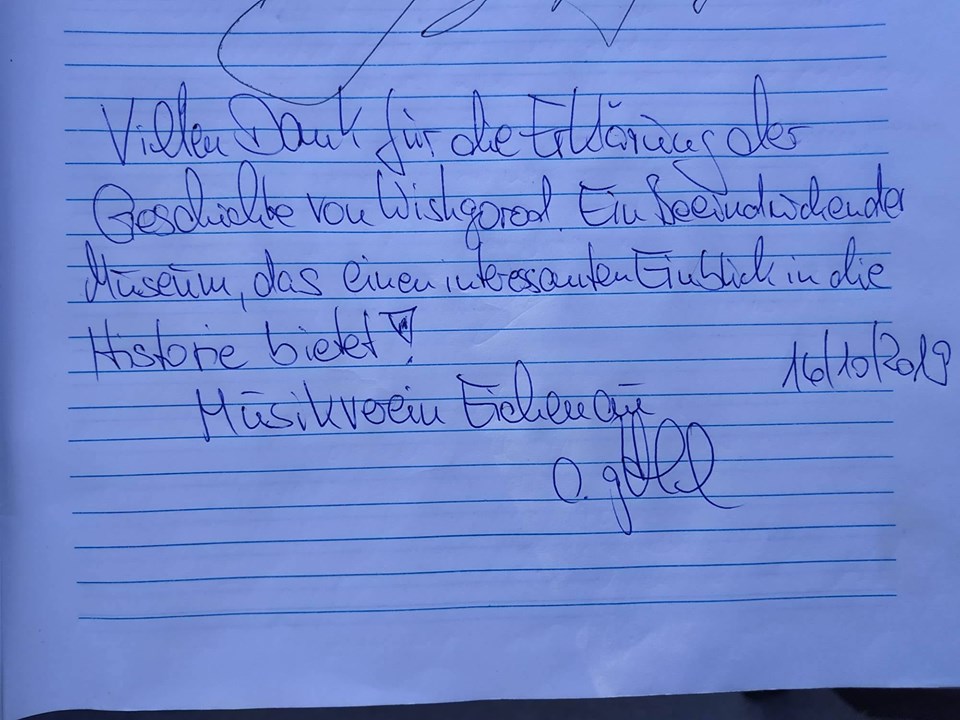 Vielen Dank für die Erklärung der
Geschichte von Wishgorod. Ein beeindruckender
Museum, das einen interessanten Einblick in die
Historie bietet!
16/10/2019
Musikverein Eichenau